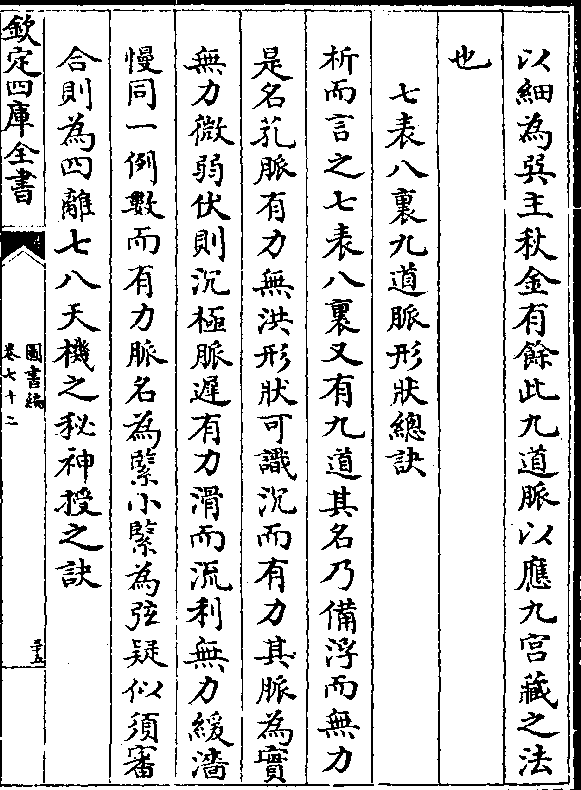 以細為巽主秋金有餘此九道脈以應九宫藏之法
也
七表八裏九道脈形狀總訣
析而言之七表八裏又有九道其名乃備浮而無力
是名芤脈有力無洪形狀可識沉而有力其脈為實
無力微弱伏則沉極脈遲有力滑而流利無力緩濇
慢同一例數而有力脈名為緊小緊為弦疑似須審
合則為四離七八天機之秘神授之訣
欽定四庫全書
圖書編
卷七十二